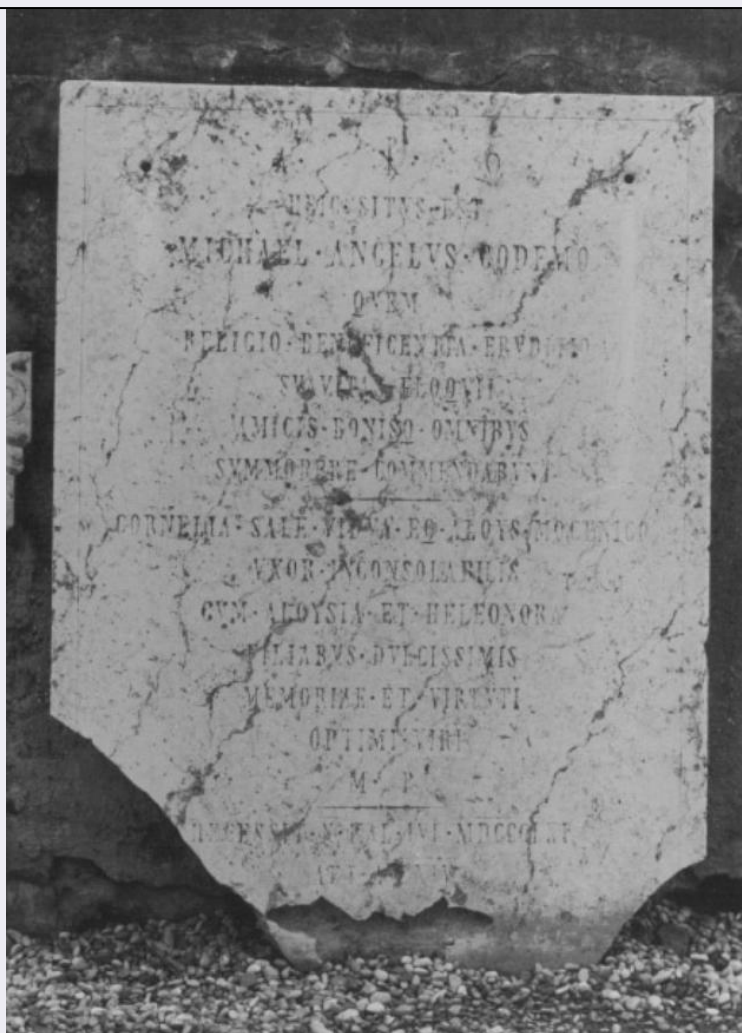 HEIC·SITVS·EST
MICHAEL·ANGELVS·CODEMO
QVEM
RELIGIO·BENEFICENTIA·ERVDITIO
SVAVITAS·ELOQVII
AMICIS·BONISQ·OMNIBVS
SVMMOPERE·COMMENDARVNT
CORNELIA·SALE·VIDVA·EQ·ALOYS·MOCENIGO
VXOR·INCONSOLABILIS
CVM·ALOYSIA·ET·HELEONORA
FILIABVS·DVLCISSIMIS
MEMORIAE·ET·VIRTVTI
OPTIMI·VIRI
M·P
DECESSIT·X·KAL·IVL